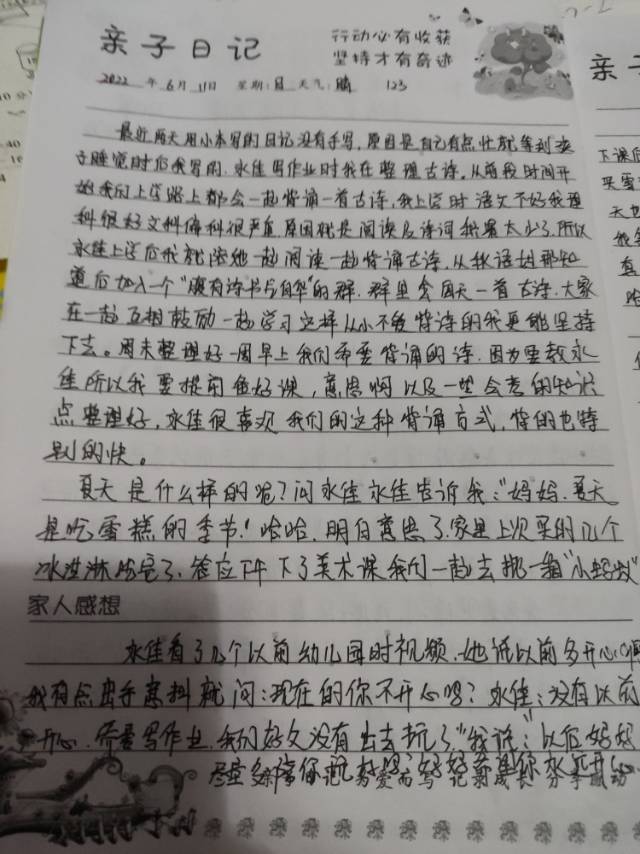 亲子日记
行动必有收获
坚持才有奇迹
2022 年 6 月 11 日 星期:日 天气:晴 123
最近两天用小本写的日记没有手写,原因是自己有点忙都等到孩
子睡觉时后我写的.永佳写作业时我在整理古诗,从前段时间开
始我们上学路上都会一起背诵一首古诗,我上学时语文不好我理
科很好文科偏科很严重.原因就是阅读及诗词我累太少了.所以
永佳上学后我就陪她一起阅读一起背诵古诗,从我语姐那知
道后加入一个"腹有诗书气自华"的群.群里会每天一首古诗.大家
在一起互相鼓励一起学习这样从小不爱背诗的我更能坚持
下去。周末整理好一周早上我们需要背诵的诗.因为要教永
佳所以我要提前备好课,意思啊以及一些会考的知识
点整理好,永佳很喜欢我们的这种背诵方式,背的也特
别的快。
夏天是什么样的呢?问永佳永佳告诉我:"妈妈.夏天
是吃雪糕的季节!哈哈.明白意思了.家里上次买的几个
冰淇淋吃完了.答应下午下了美术课我们一起去挑一箱"小蚂蚁"
家人感想
永佳看了几个以前幼儿园时视频.她说以前多开心
我有点出乎意料就问:现在的你不开心吗?永佳:没有以前
开心.需要写作业.我们好久没有出去玩了."我说:"以后妈妈
尽量多陪你
亲子
下课后
买雪
天